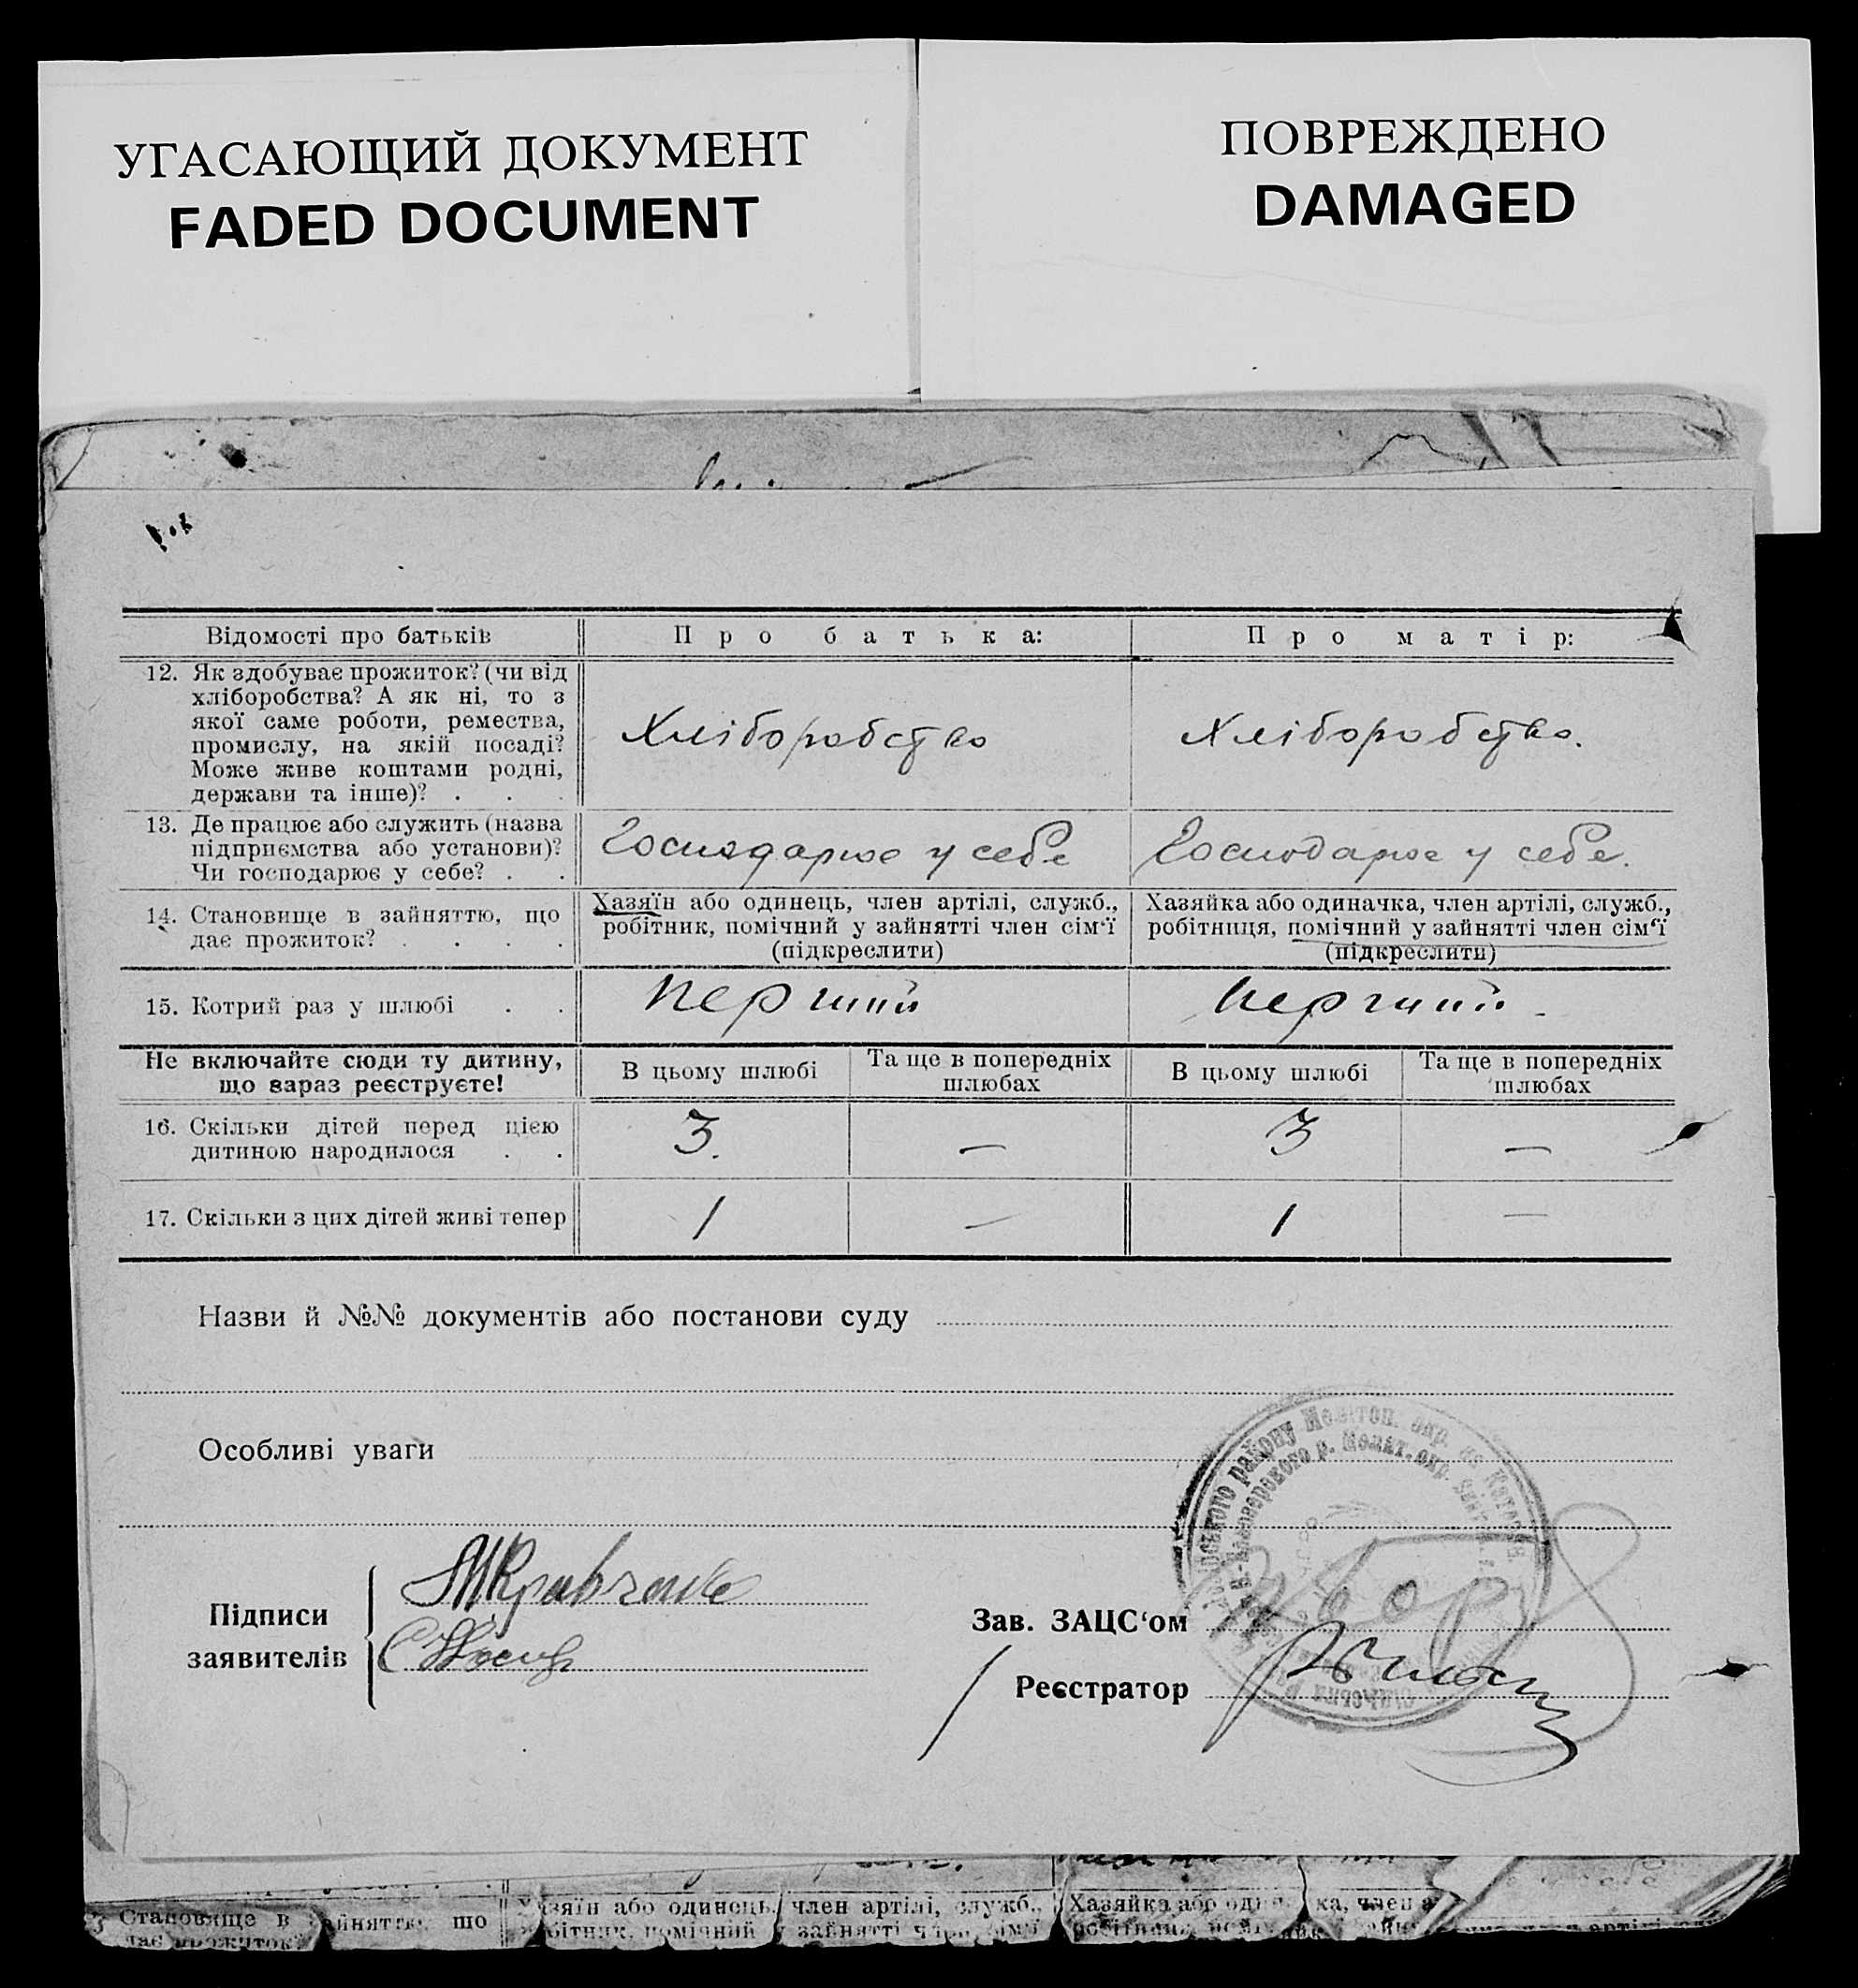 УГАСАЮЩИЙ ДОКУМЕНТ
FADED DOCUMENT
ПОВРЕЖДЕНО
DAMAGED
Відомості про батьків
Про батька:
Про матір:
12. Як здобуває прожиток? (чи від
хліборобства? А як ні, то з
якої саме роботи, ремества,
промислу, на якій посаді?
Може живе коштами родні,
держави та інше)? . . .
Хліборобство
Хліборобство.
13. Де працює або служить (назва
підприємства або установи)?
Чи господарює у себе? . .
Господарює у себе
Господарює у себе.
14. Становище в зайняттю, що
дає прожиток? . . . .
Хазяїн або одинець, член артілі, служб.,
робітник, помічний у зайнятті член сім‘ї
(підкреслити)
Хазяйка або одиначка, член артілі, служб.,
робітниця, помічний у зайнятті член сім‘ї
(підкреслити)
15. Котрий раз у шлюбі . .
перший
перший.
Не включайте сюди ту дитину,
що зараз реєструєте!
В цьому шлюбі
Та ще в попередніх
шлюбах
В цьому шлюбі
Та ще в попередніх
шлюбах
16. Скільки дітей перед цією
дитиною народилося . .
3. — 3 —
17. Скільки з цих дітей живі тепер
1 — 1 —
Назви й №№ документів або постанови суду
Особливі уваги
Підписи
заявителів
МКравченко
Зав. ЗАЦС‘ом
Реєстратор
Становище в зайняттю, що
дає прожиток?
Хазяїн або одинець, член артілі, служб.,
робітник, помічний у зайнятті член сім‘ї